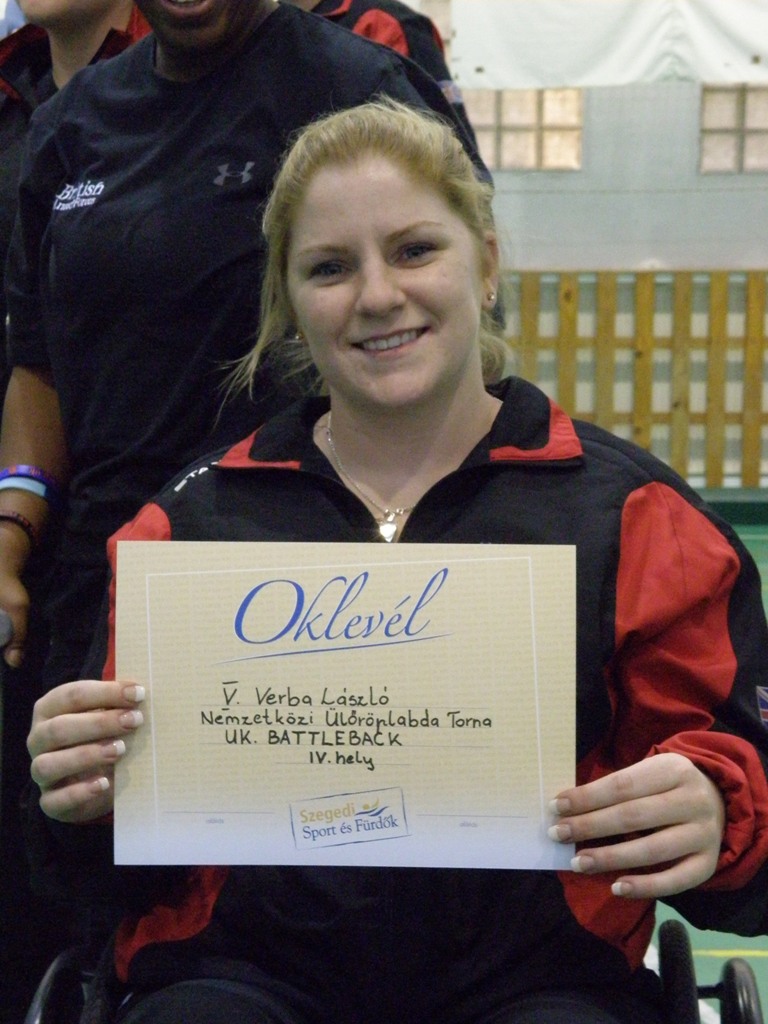 British
Oklevél
V. Verba László
Nemzetközi Ülőröplabda Torna
UK. BATTLEBACK
IV. hely
Szegedi
Sport és Fürdők